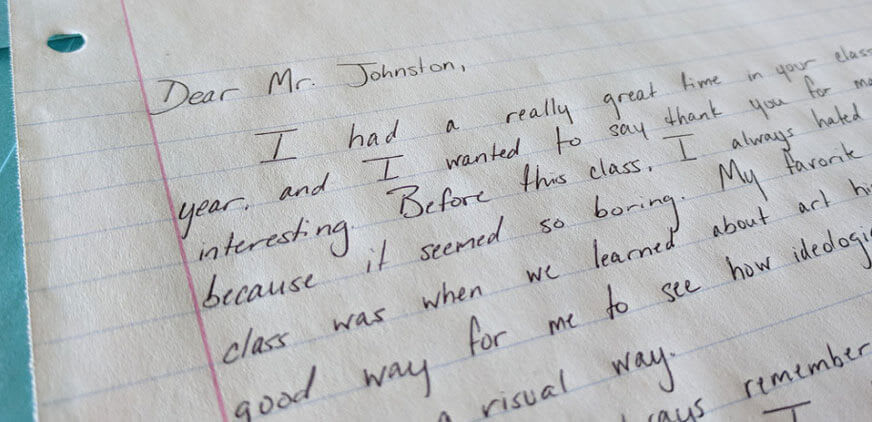 Dear Mr. Johnston,
I had a really great time in your class
year, and I wanted to say thank you for
interesting. Before this class, I always hated
because it seemed so boring. My favorite
class was when we learned about art
good way for me to see how
visual way.
remember
I